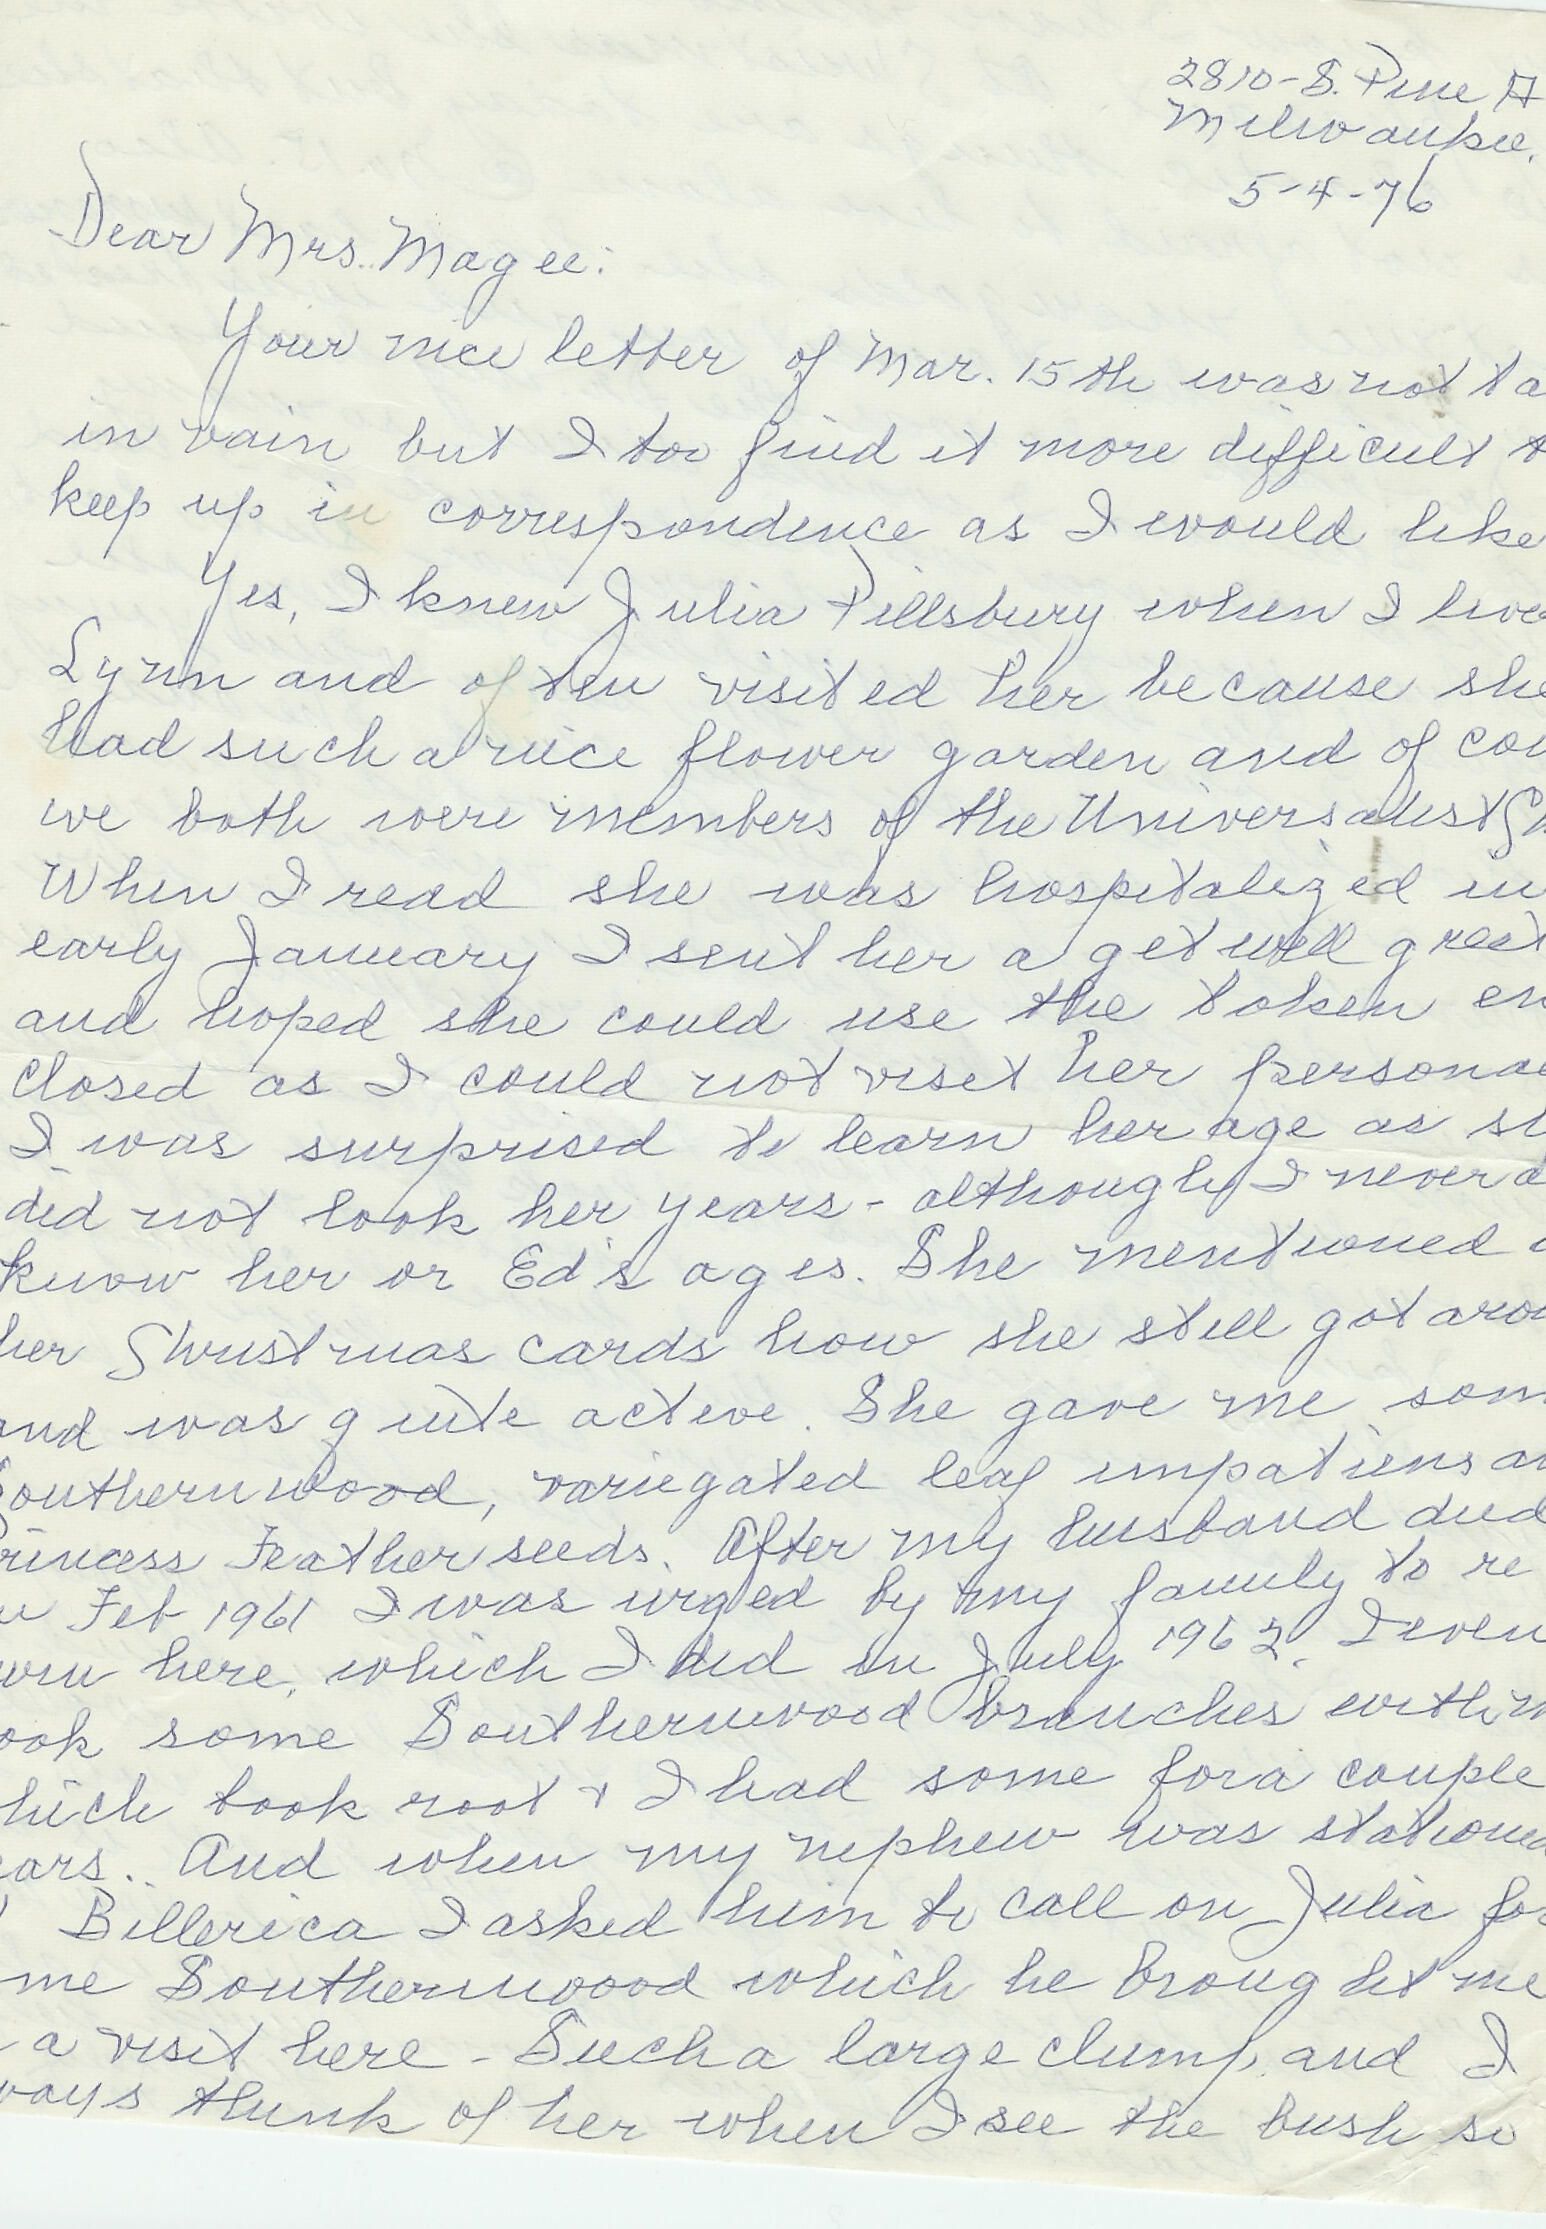 2810-S. Pine
Milwaukee,
5-4-76
Dear Mrs. Magee:
Your nice letter of Mar. 15th was not ta
in vain but I too find it more difficult t
keep up in correspondence as I would like
Yes, I knew Julia Pillsbury when I live
Lynn and often visited her because she
had such a nice flower garden and of cou
we both were members of the Universalist Ch
When I read she was hospitalized in
early January I sent her a get well greet
and hoped she could use the token en
closed as I could not visit her persona
I was surprised to learn her age as s
did not look her years - although I never d
know her or Ed's ages. She mentioned
her Christmas cards how she still got arou
and was quite active. She gave me som
Southernwood, variegated leaf impatiens a
rincess Feather seeds. After my husband died
Feb 1961 I was urged by my family to re
urn here, which I did in July 1962. I even
ook some Southernwood branches with m
hich took root & I had some for a couple
ears. And when my nephew was stationed
Billerica I asked him to call on Julia fo
me Southernwood which he brought me
a visit here - Such a large clump, and I
ways think of her when I see the bush so